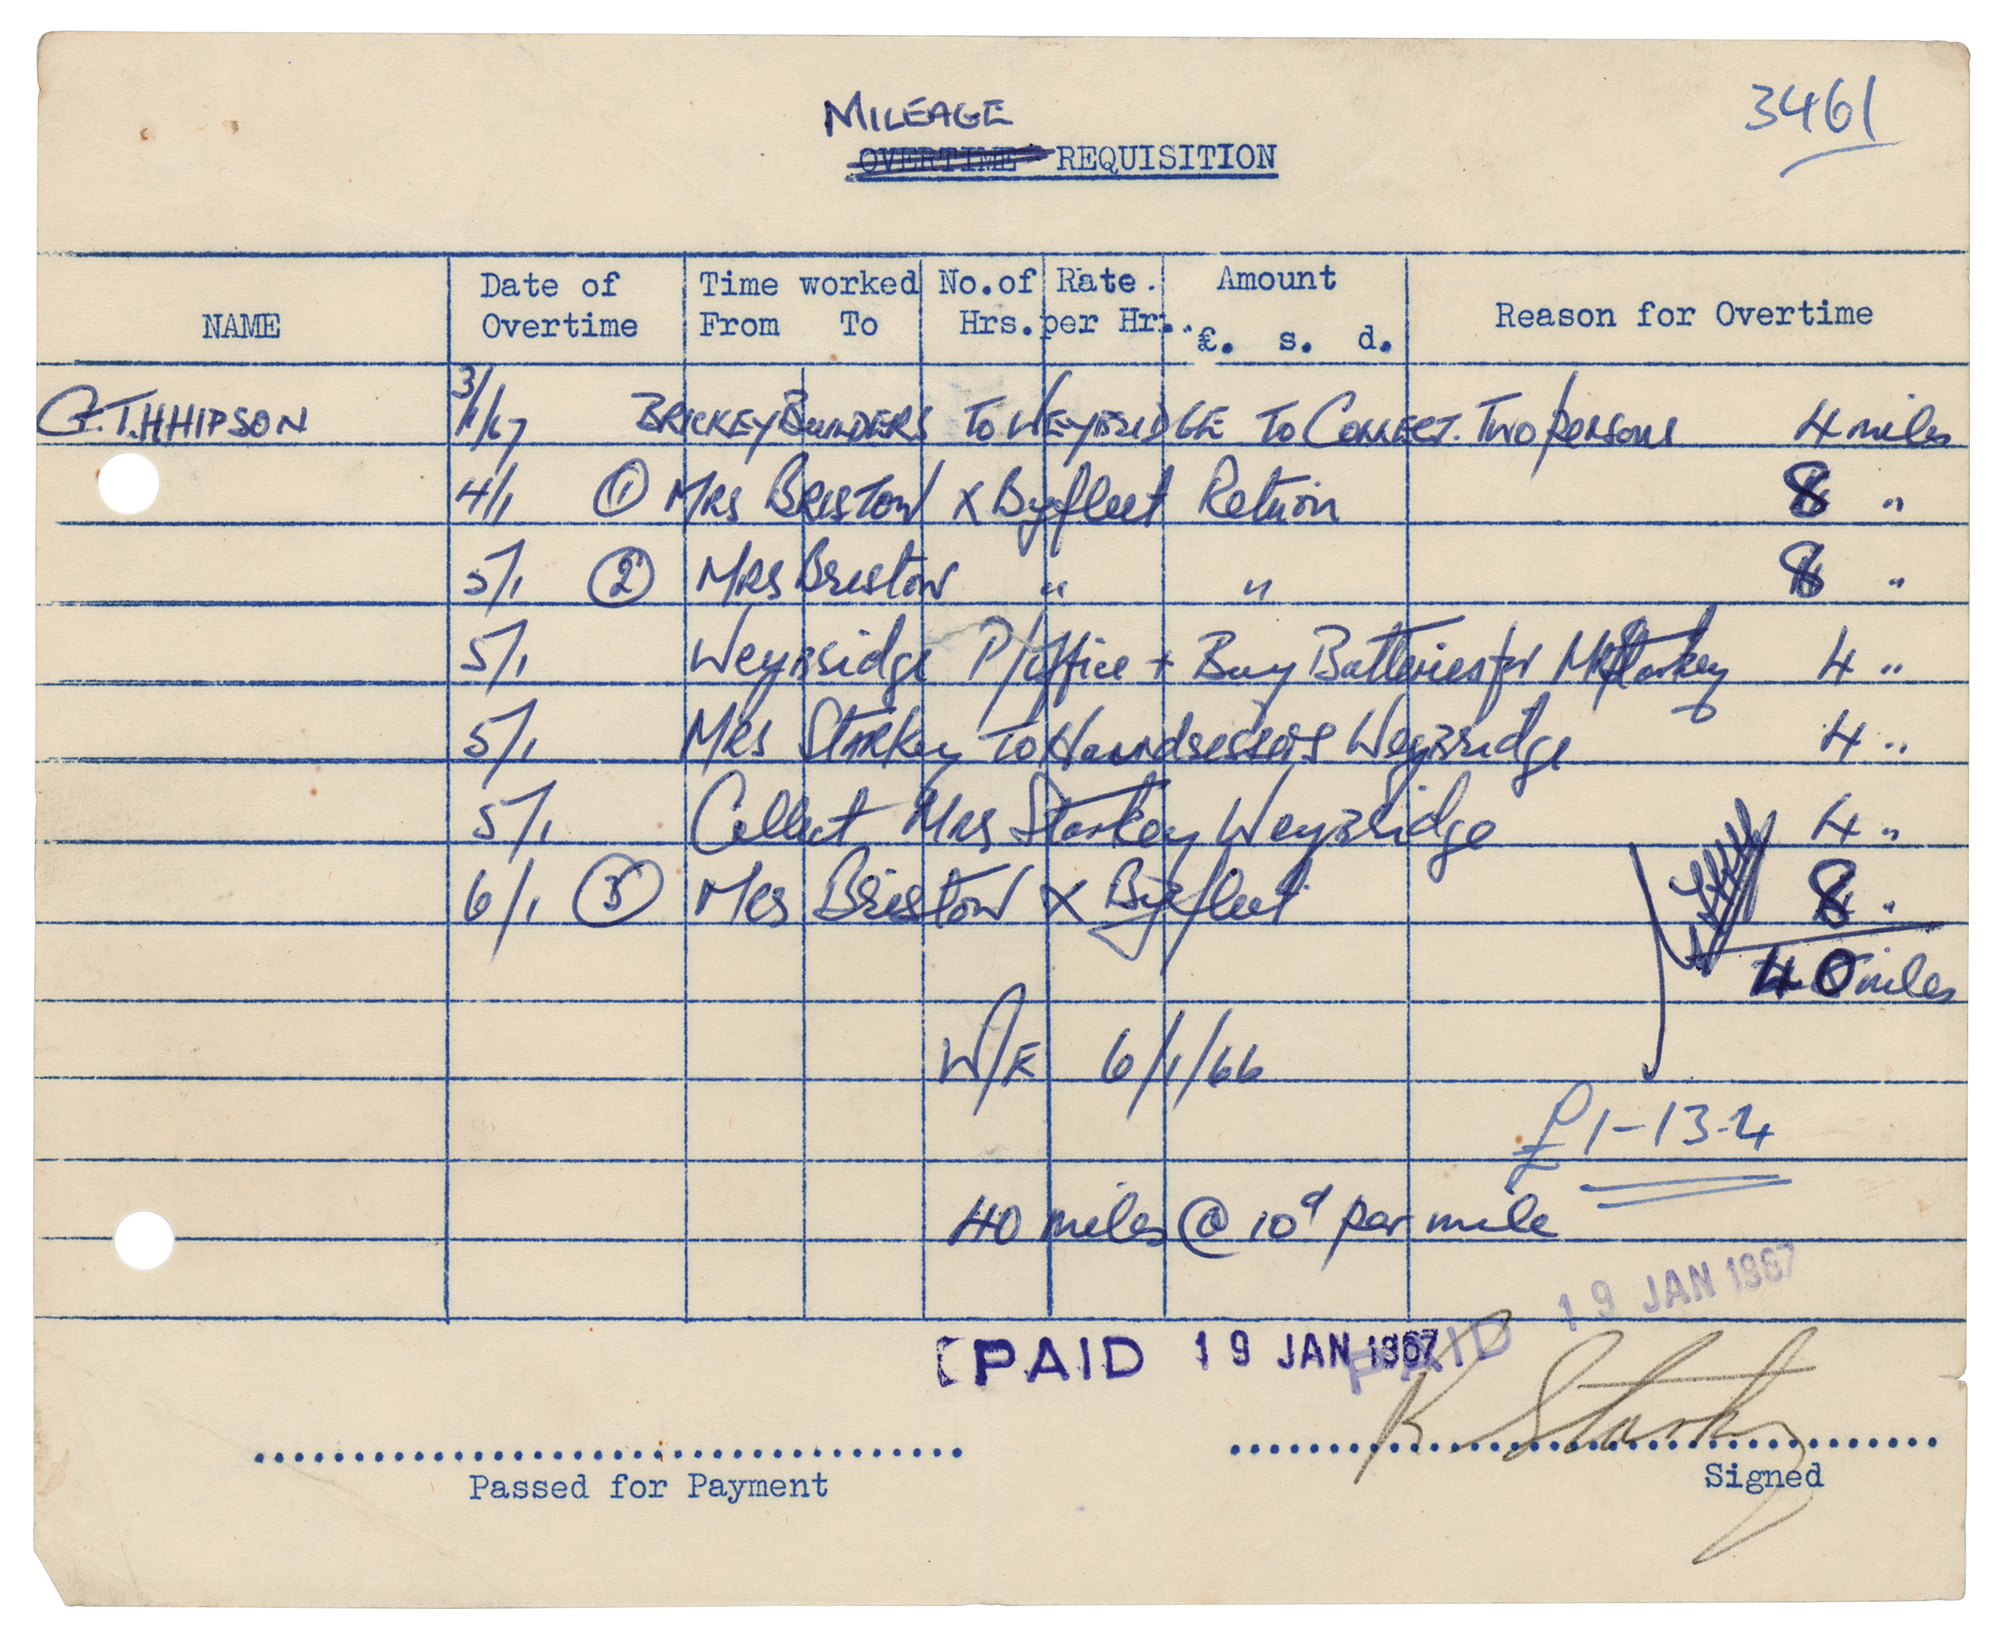 3461
MILEAGE
OVERTIME REQUISITION
NAME Date of Overtime Time worked From To No.of Hrs. Rate. per Hr. Amount £. s. d. Reason for Overtime
G.T.HHIPSON 3/1/67 BRICKEY BUILDERS TO WEYBRIDGE TO CONNECT. TWO persons 4 miles
4/1 ① MRS BRISTOW x Byfleet Return 8 "
5/1 ② MRS Bristow " " 8 "
5/1 Weybridge P/office + Buy Batteries for MR Starkey 4 "
5/1 MRS Starkey TO Hairdressers Weybridge 4 "
5/1 Collect Mrs Starkey Weybridge 4 "
6/1 ③ Mrs Bristow x Byfleet 8 "
40 miles
W/E 6/1/66
£1-13-4
40 miles @ 10d per mile
PAID 19 JAN 1967
PAID 19 JAN 1967
K Starkey
Passed for Payment
Signed